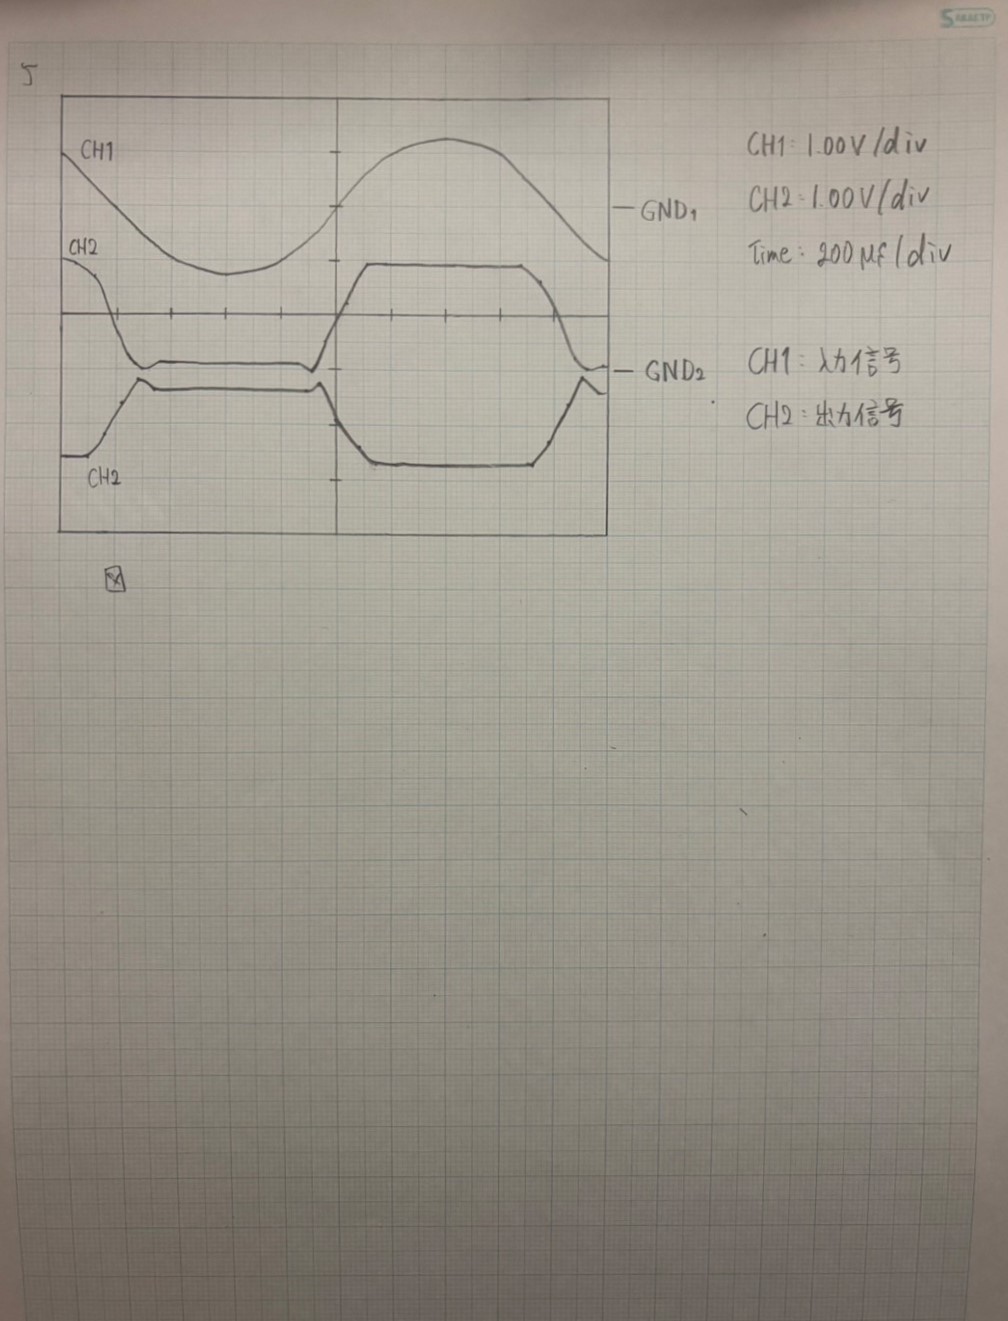 5
CH1
CH2
CH2
GND₁
GND₂
CH1: 1.00V/div
CH2: 1.00V/div
Time: 200 μs/div
CH1: 入力信号
CH2: 出力信号
図